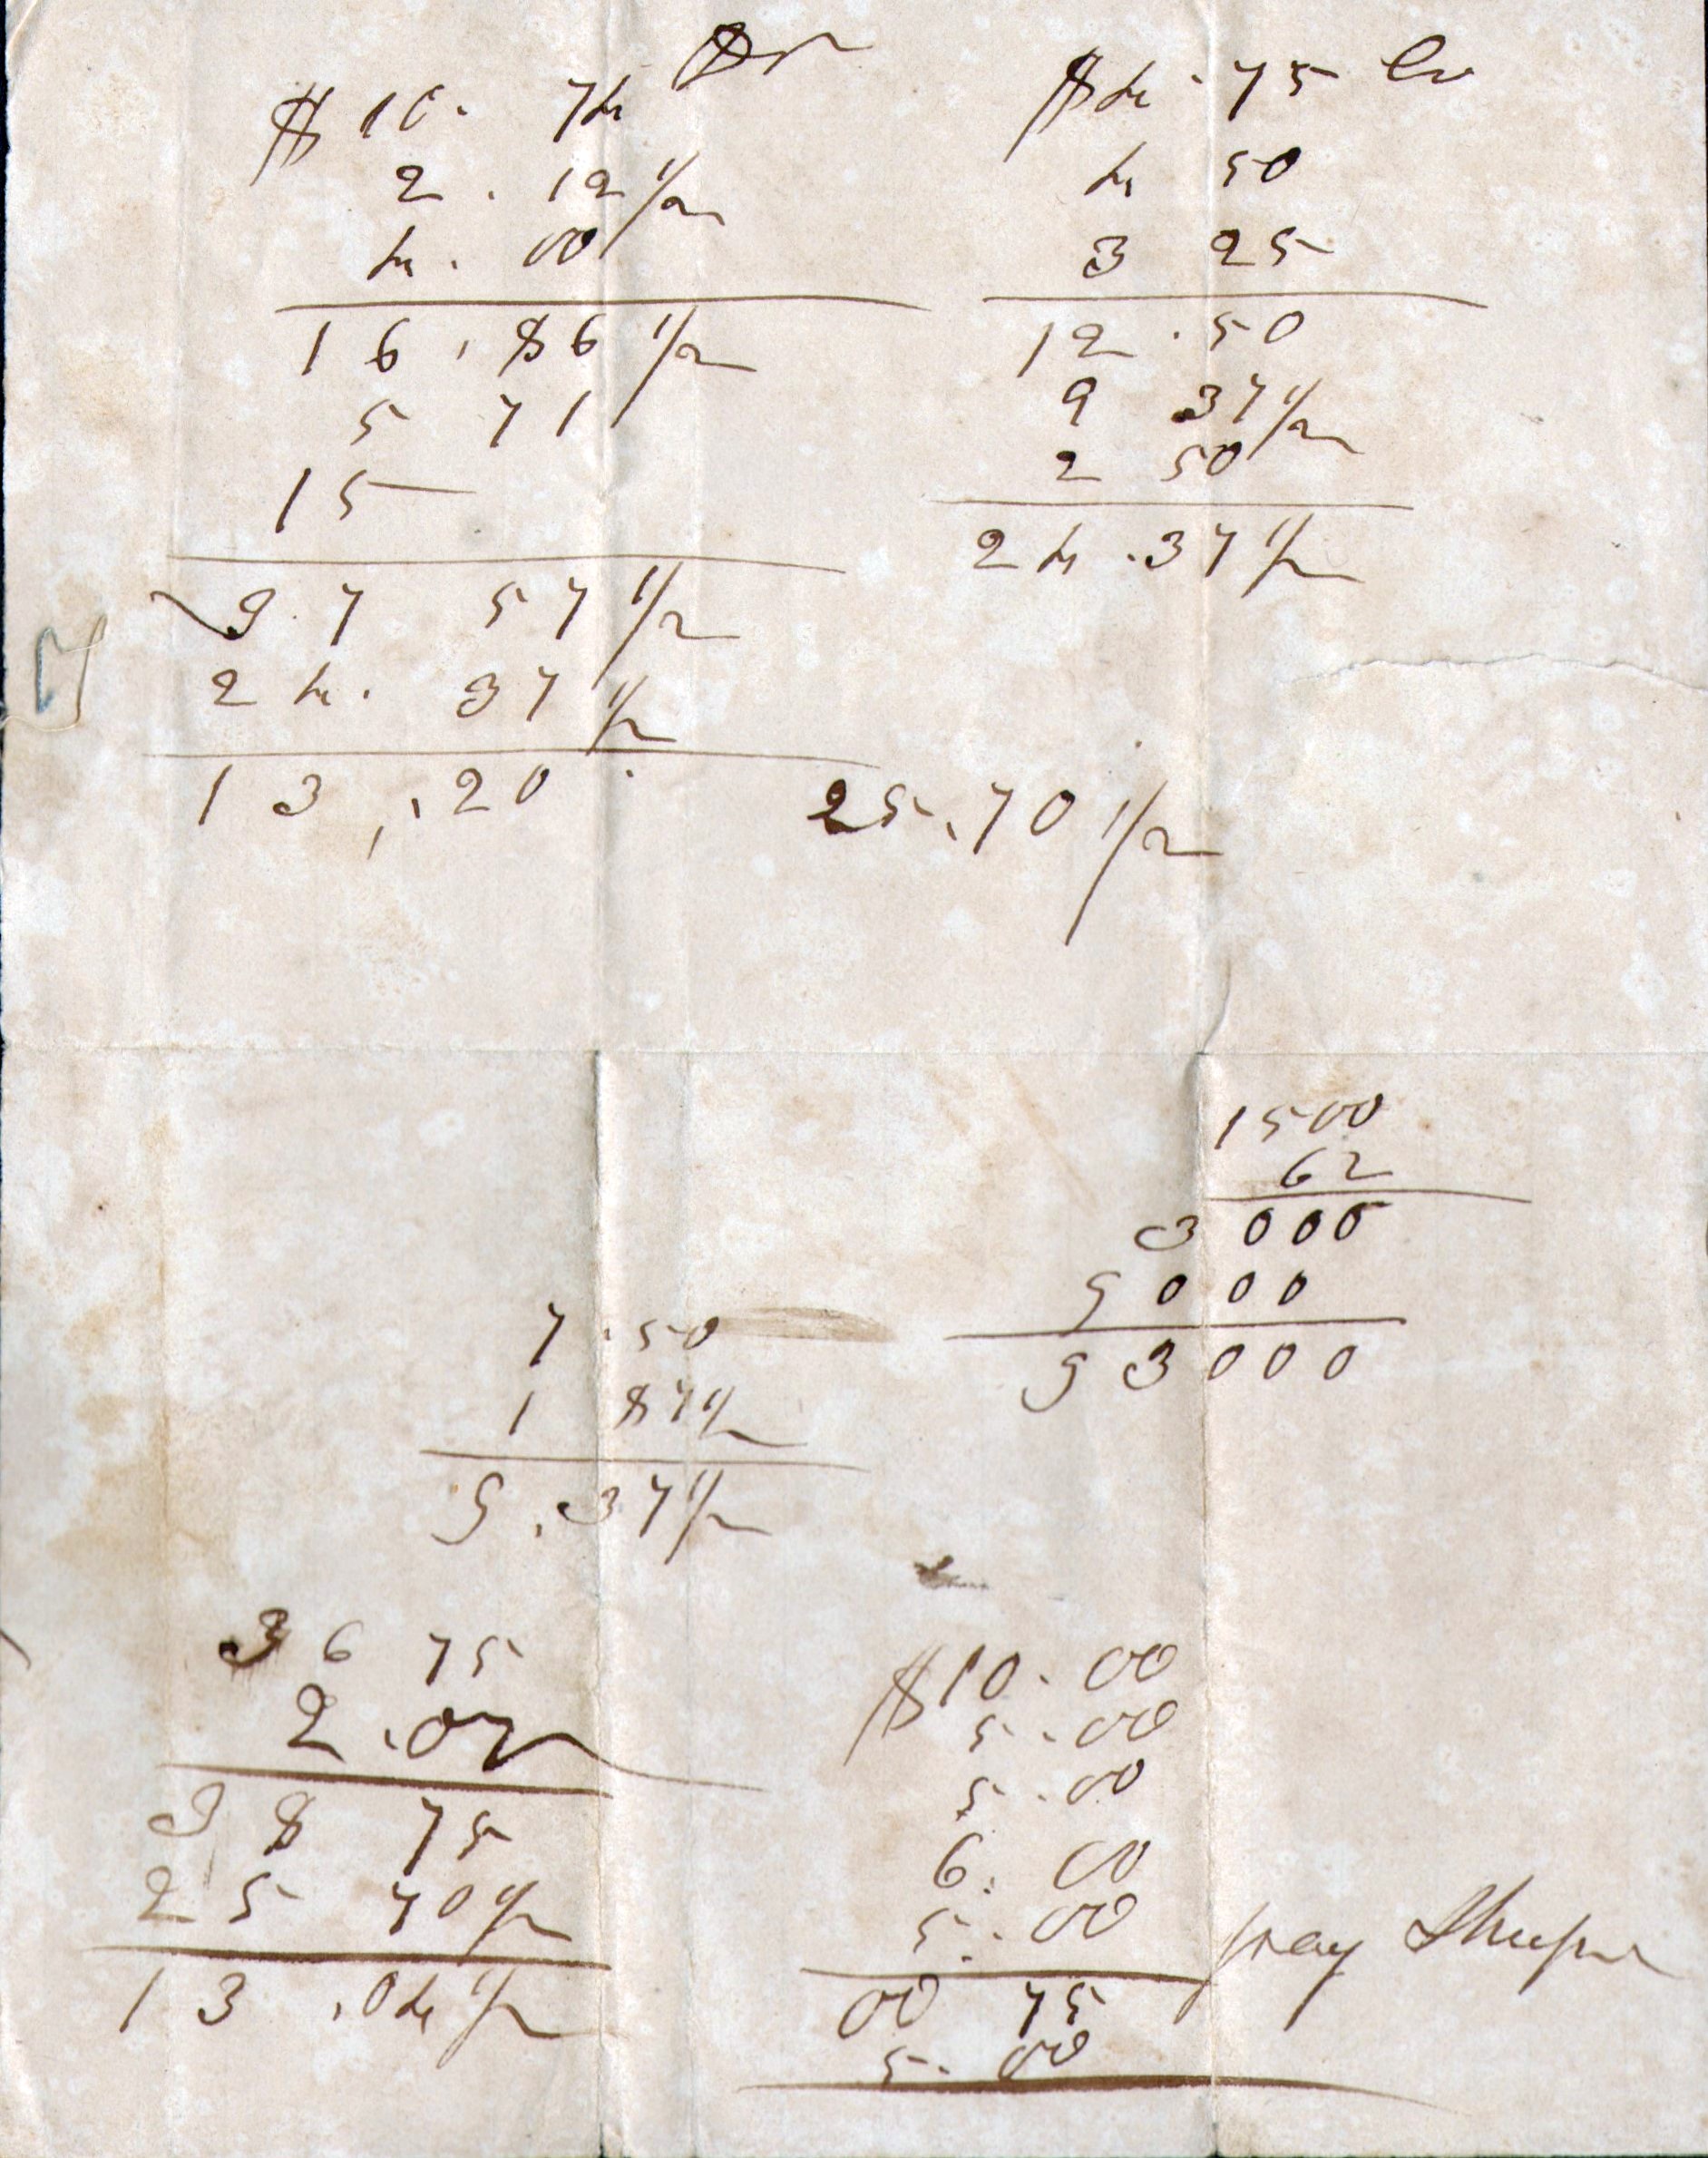 Dr
$10. 74
2. 12 1/2
4. 00
16. 86 1/2
5 71
15
37 57 1/2
24. 37 1/2
13.20
$4.75 Cr
4 50
3 25
12.50
9 37 1/2
2 50
24.37 1/2
25.70 1/2
1500
62
3000
9000
93000
7.50
1 87 1/2
9.37 1/2
36 75
2.00
38 75
25 70 1/2
13.04 1/2
$10.00
5.00
5.00
6.00
5.00
00 75
5.00
pay